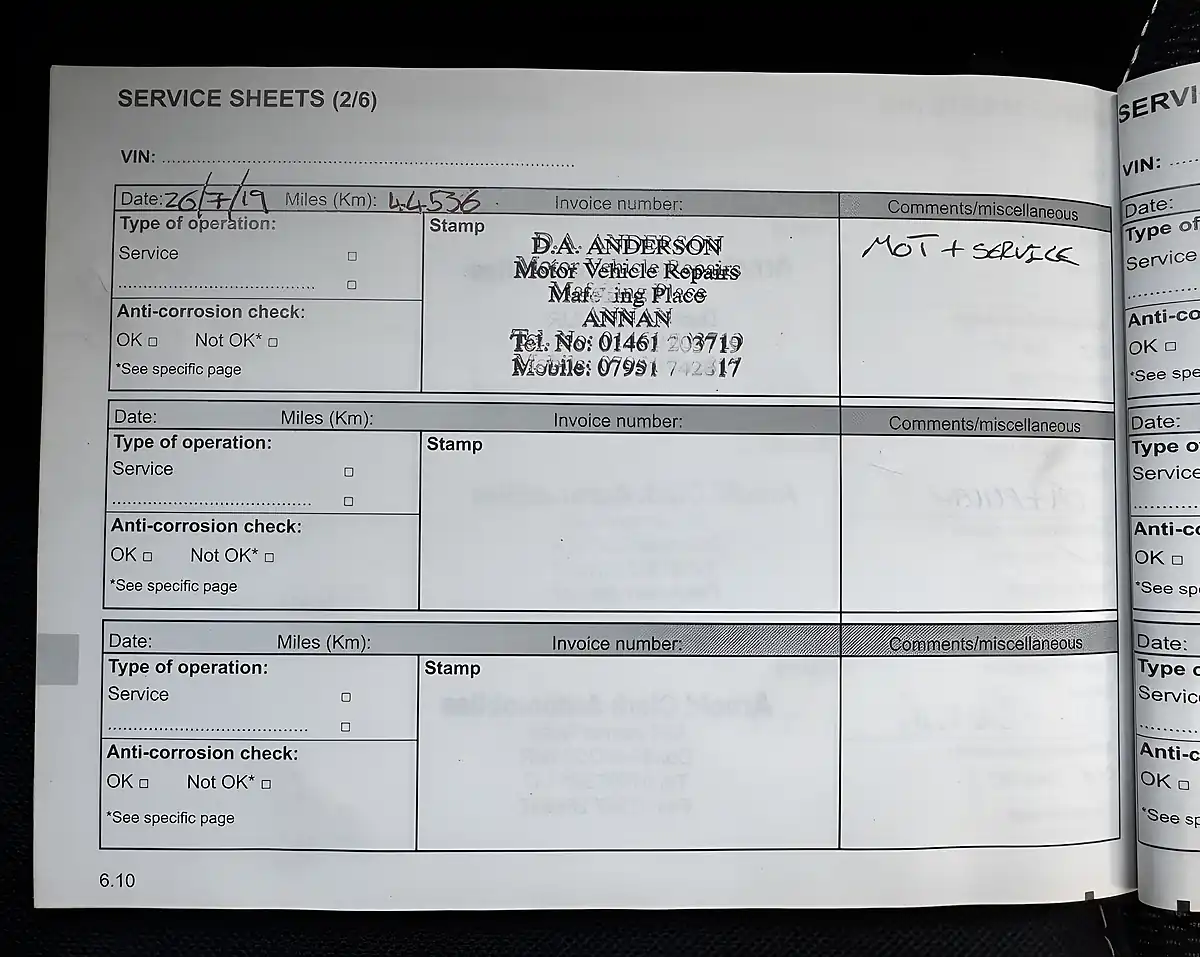 SERVICE SHEETS (2/6)
VIN:
Date: 26/7/19 Miles (Km): 44536 Invoice number: Comments/miscellaneous
Type of operation:
Service
Anti-corrosion check:
OK Not OK*
*See specific page
Stamp
D.A. ANDERSON
Motor Vehicle Repairs
Place
ANNAN
Tel. No: 01461
Mobile: 07951
MOT + SERVICE
Date: Miles (Km): Invoice number: Comments/miscellaneous
Type of operation:
Service
Anti-corrosion check:
OK Not OK*
*See specific page
Stamp
Date: Miles (Km): Invoice number: Comments/miscellaneous
Type of operation:
Service
Anti-corrosion check:
OK Not OK*
*See specific page
Stamp
6.10
SERVI
VIN:
Date:
Type of
Service
Anti-co
OK
*See spe
Date:
Type o
Service
Anti-co
OK
*See sp
Date:
Type o
Servic
Anti-c
OK
*See sp